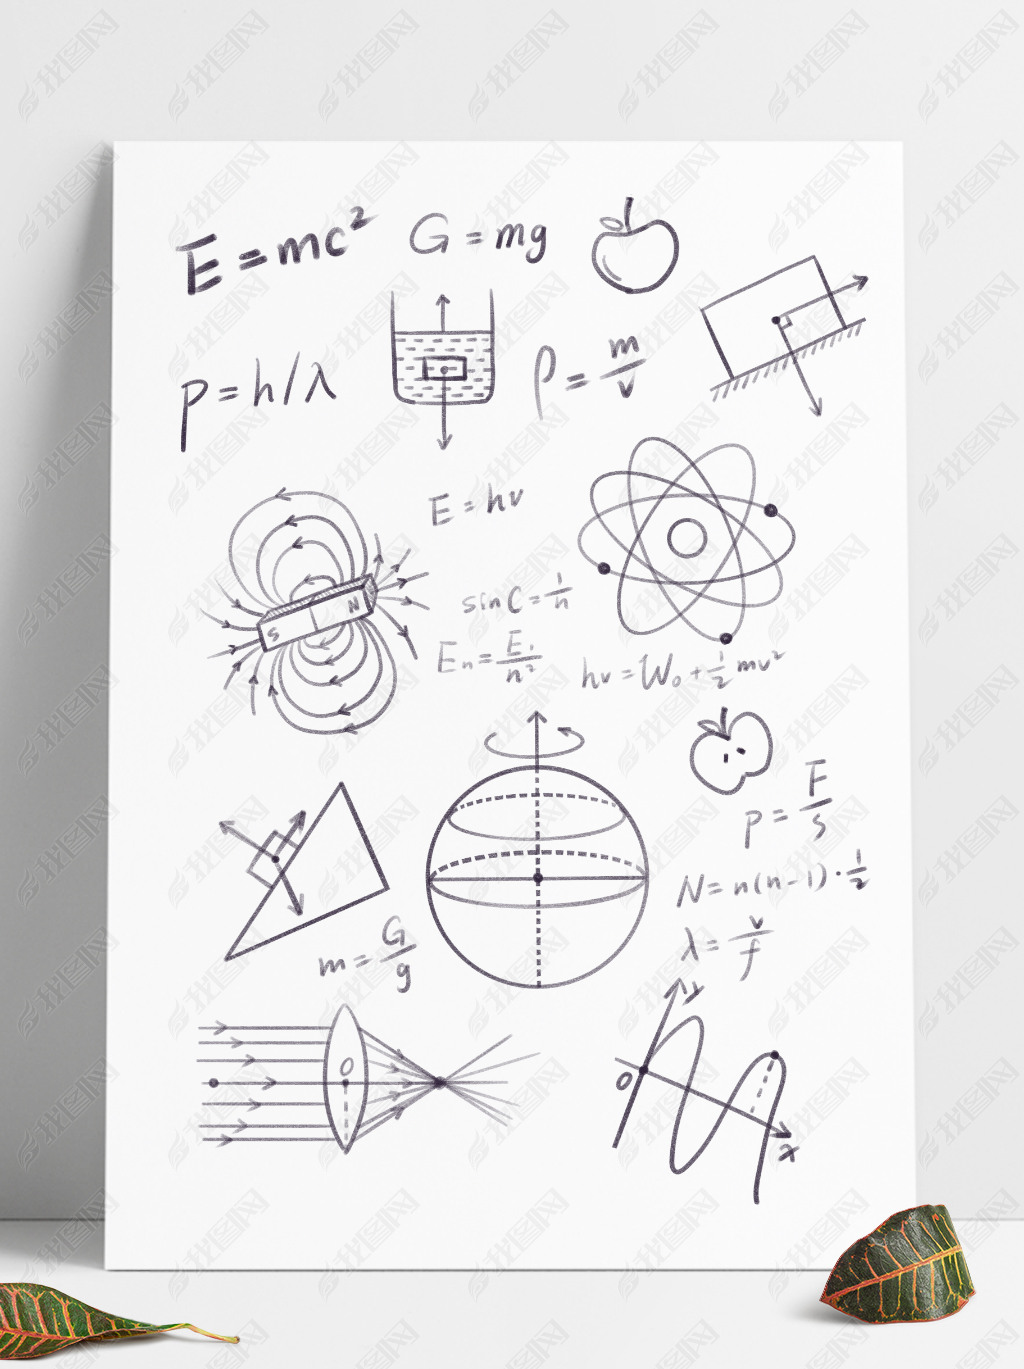 E=mc²
G=mg
p=h/λ
ρ=m/v
E=hν
S
N
sinC=1/n
Eₙ=E₁/n²
hν=W₀+1/2mv²
p=F/S
N=n(n-1)·1/2
m=G/g
λ=v/f
y
O
O
x
我图网